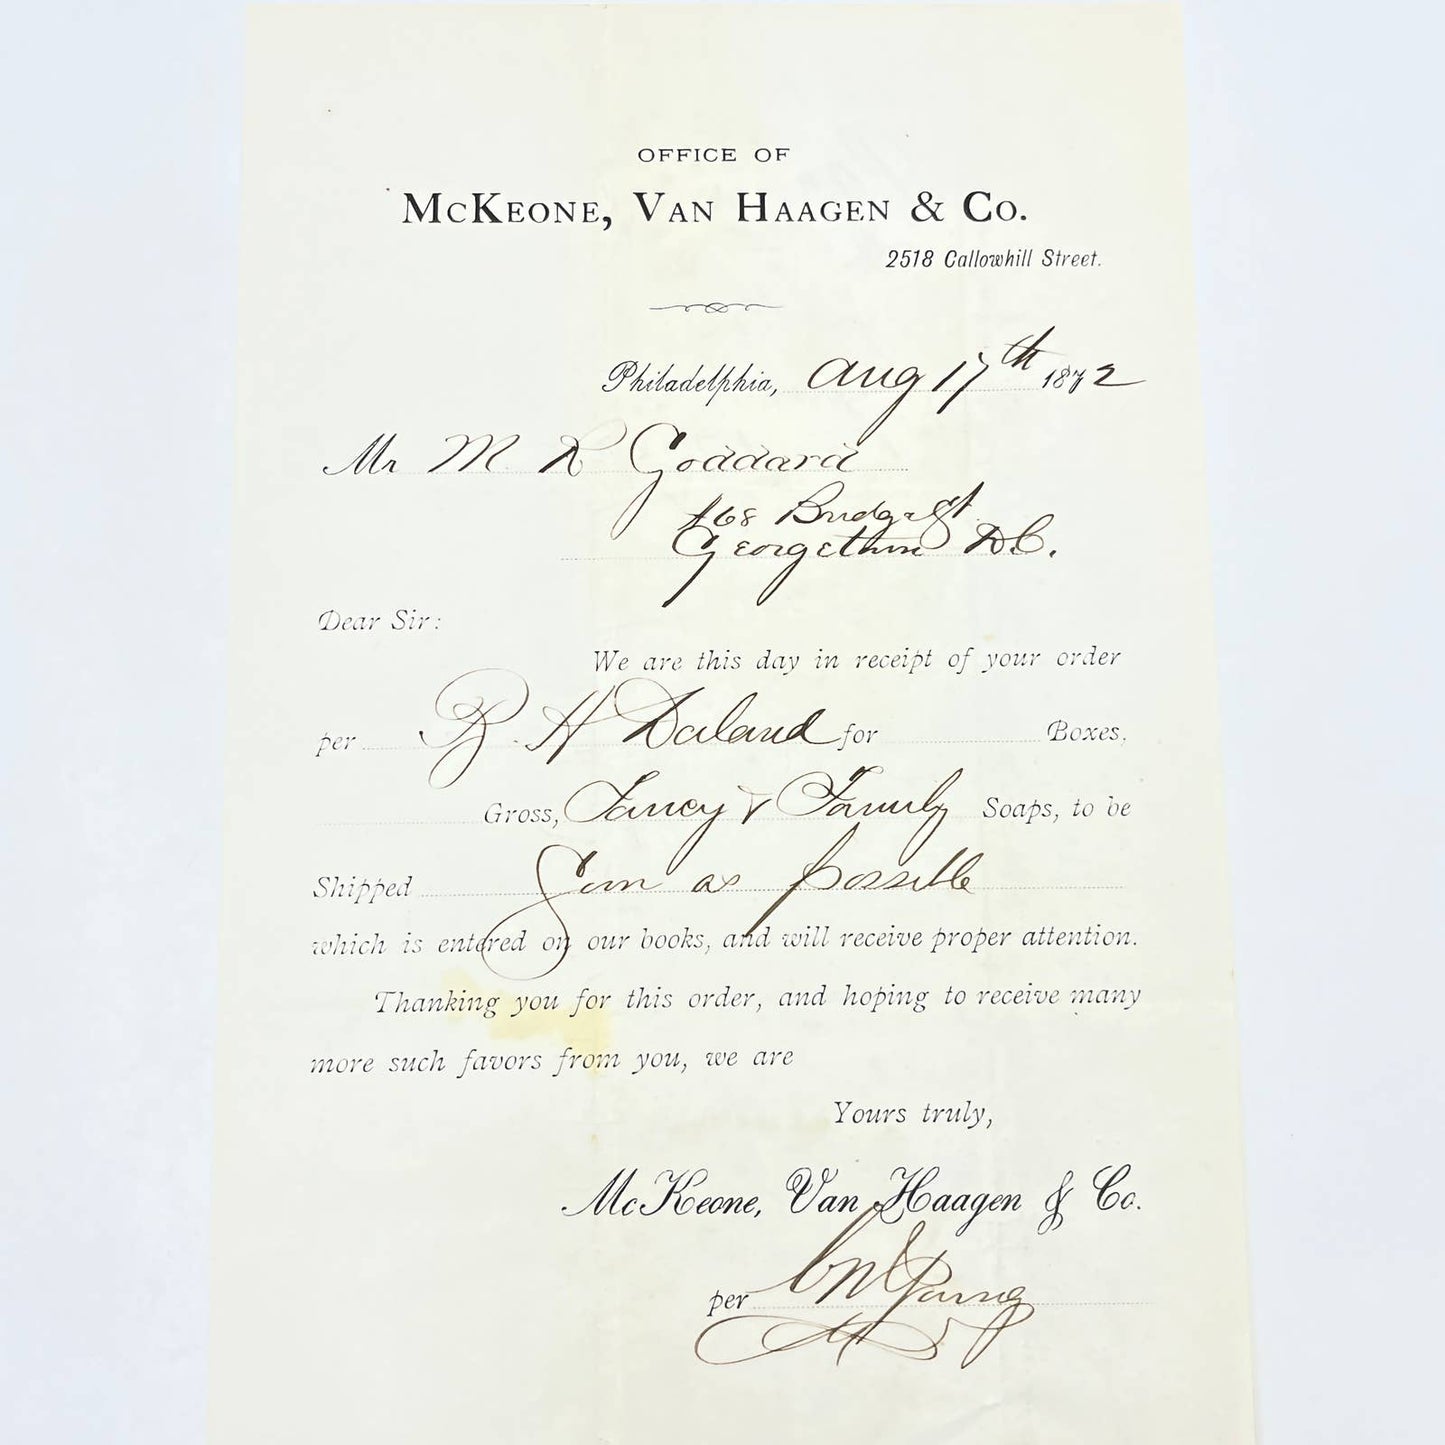 OFFICE OF
McKeone, Van Haagen & Co.
2518 Callowhill Street.
Philadelphia, Aug 17th 1872
Mr M R Goddard
168 Bridge St
Georgetown D.C.
Dear Sir:
We are this day in receipt of your order
per H Daland for Boxes,
Gross, Fancy & Family Soaps, to be
Shipped Soon as possible
which is entered on our books, and will receive proper attention.
Thanking you for this order, and hoping to receive many
more such favors from you, we are
Yours truly,
McKeone, Van Haagen & Co.
per